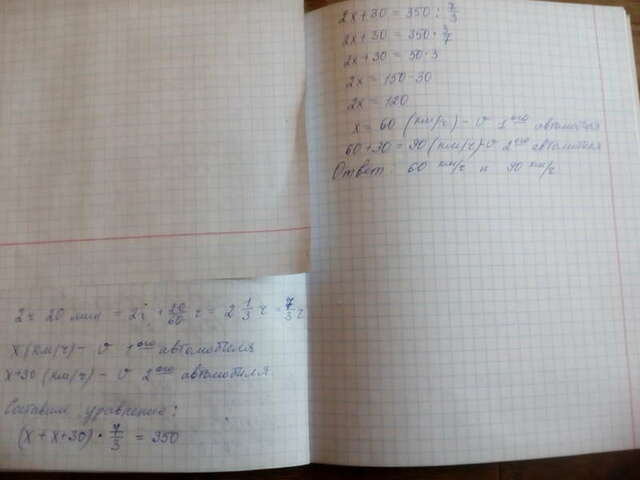 2ч 20 мин = 2ч + 20/60 ч = 2 1/3 ч = 7/3 ч
x (км/ч) - v 1ого автомобиля
x+30 (км/ч) - v 2ого автомобиля
Составим уравнение:
(x + x+30) • 7/3 = 350
2x+30 = 350 : 7/3
2x+30 = 350 • 3/7
2x+30 = 50•3
2x = 150-30
2x = 120
x = 60 (км/ч) - v 1ого автомобиля
60+30 = 90 (км/ч) - v 2ого автомобиля
Ответ: 60 км/ч и 90 км/ч